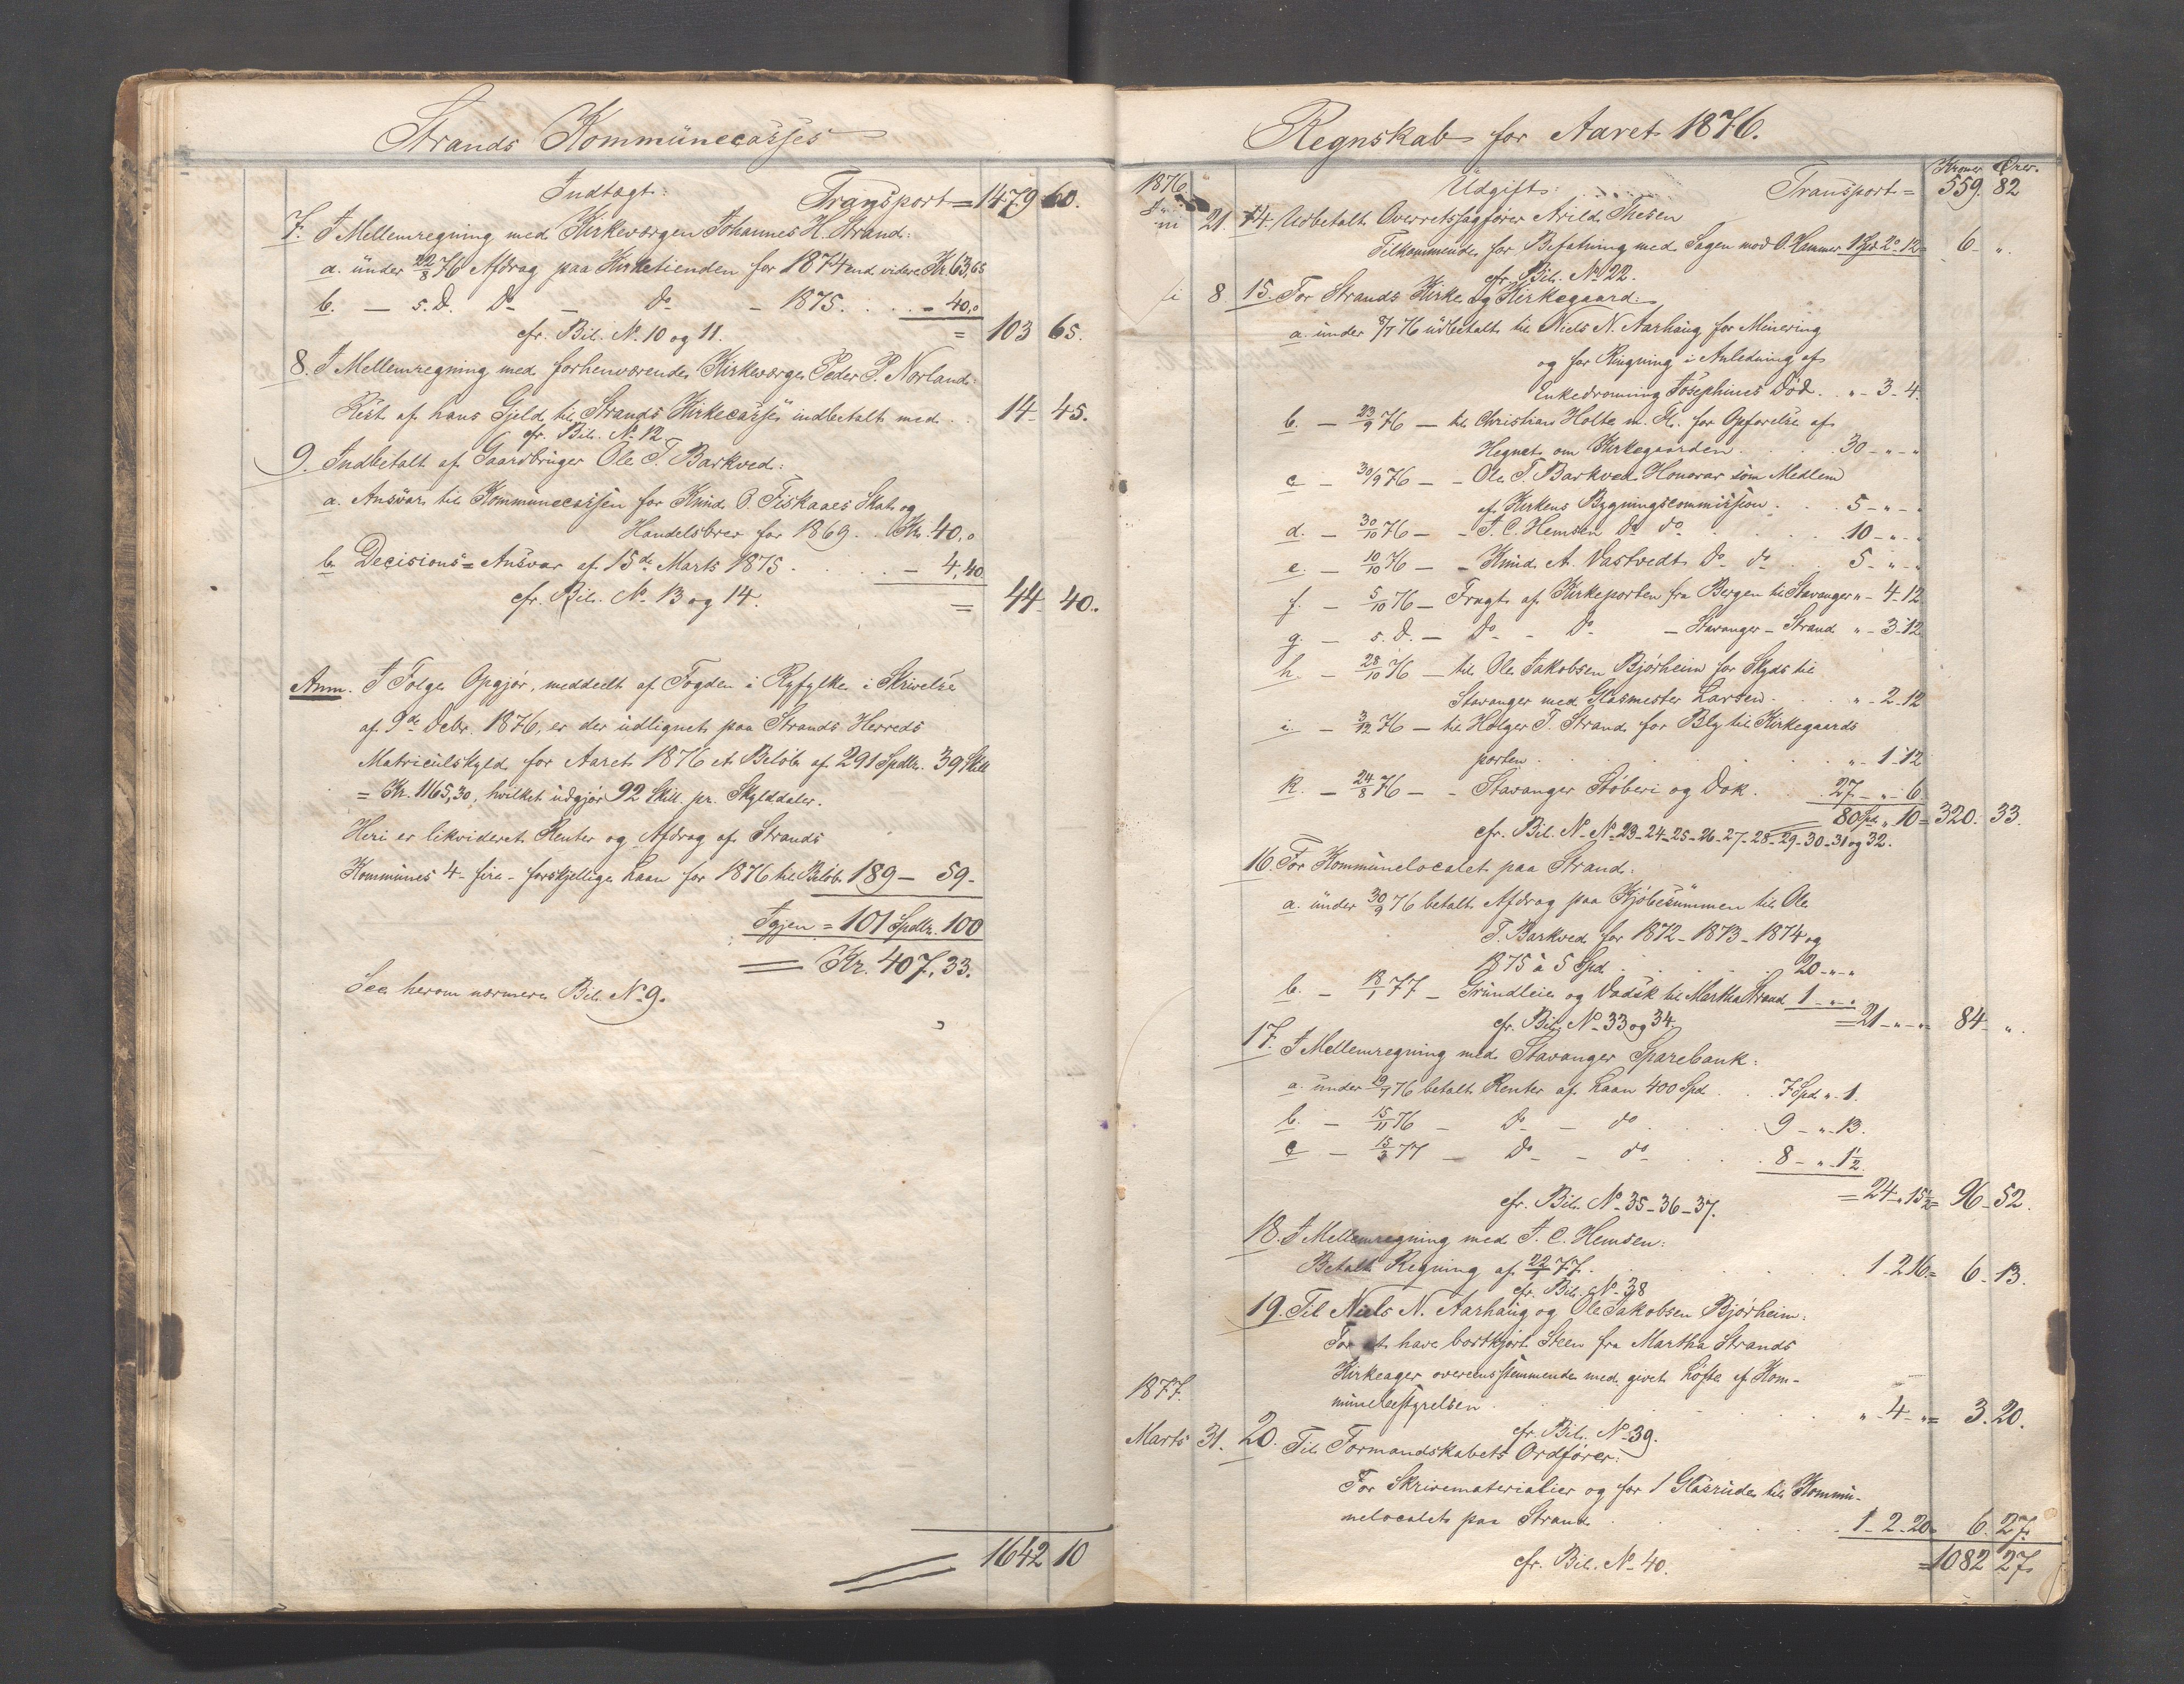 Strands Kommünecasses
Indtægt: Transport = 1479 60.
7. I Mellemregning med Kirkeværgen Johannes H. Strand:
a. ünder 22/8 76 Afdrag paa Kirketienden for 1874 end videre Kr. 63,65
b. — s. D. Do — do — 1875 . . . - 40,0
cfr. Bil. No. 10 og 11. = 103 65.
8. I Mellemregning med forhenværende Kirkeværge Peder P. Norland:
Rest af hans Gjeld til Strands Kirkecasse indbetalt med . . 14 - 45.
cfr. Bil. No 12
9. Indbetalt af Gaardbrüger Ole T. Barkved:
a. Ansvar til Kommünecassen for Knud O. Fiskaaes Skat og
Handelsbrev for 1869 . . Kr. 40,0
b. Decisions=Ansvar af 15de Marts 1875 . . . . - 4,40
cfr. Bil. No. 13 og 14. = 44 - 40.
Anm. I Følge Opgjør, meddeelt af Fogden i Ryfylke i Skrivelse
af 9de Decbr. 1876, er der üdlignet paa Strands Herreds
Matriculskyld for Aaret 1876 et Beløb af 291 Spdlr. 39 Skill
= Kr. 1165,30, hvilket üdgjør 92 Skill. pr. Skylddaler.
Heri er likvideret Renter og Afdrag af Strands
Kommünes 4- fire - forskjellige Laan for 1876 til Beløb 189 — 59 -
Igjen = 101 Spdlr. 100
= Kr. 407,33.
See herom nærmere Bil. No 9.
1642 10
Regnskab for Aaret 1876.
Kroner Ører.
1876. Üdgift: Transport = 559. 82
21. 14. Üdbetalt Overretssagfører Arild Thesen
Tilkommende for Befatning med Sagen mod O. Hammer 1 Spd. 2 - 12 = 6 - „.
cfr. Bil. No 22.
8. 15. For Strands Kirke og Kirkegaard:
a. ünder 8/7 76 üdbetalt til Niels N. Aarhaüg for Minering
og for Ringning i Anledning af
Enkedronning Josephines Død . „ - 3 - 4.
b. — 23/9 76 — til Christian Holta m. Fl. for Opførelse af
Hegnet om Kirkegaarden . . . . 30 - „ - „
c — 30/9 76 — - Ole T. Barkved Honorar som Medlem
af Kirkens Bygningscommission . . . 5 - „ - „
d. — 30/10 76 — - I. C. Hemsen do do . . . . 10 - „ - „
e. — 10/10 76 — - Knud A. Vastvedt do do . . 5 - „ - „
f. — 5/10 76 — Fragt af Kirkeporten fra Bergen til Stavanger „ - 4 - 12
g. — s. D. — Do - Do — Stavanger - Strand „ - 3 - 12
h. — 28/10 76 — til Ole Jakobsen Bjørheim for Skyds til
Stavanger med Glasmester Larsen . . „ - 2 - 12
i. — 3/12 76 — til Holger T. Strand for Bly til Kirkegaards
porten . . . . . „ - 1 - 12
k. — 24/8 76 — - Stavanger Støberi og Dok . . 27 - „ - 6
80 Spd „ 10 = 320. 33.
cfr. Bil. No. No 23-24-25-26-27-28-29-30-31 og 32.
16. For Kommünelocalet paa Strand:
a. ünder 30/9 76 betalt Afdrag paa Kjøbesümmen til Ole
T. Barkved for 1872 - 1873 - 1874 og
1875 à 5 Spd . . . . 20 - „ - „
b. — 18/1 77 — Gründleie og Vadsk til Martha Strand 1 - „ - „
cfr. Bil. No 33 og 34. = 21 - „ - „ = 84 - „.
17. I Mellemregning med Stavanger Sparebank:
a. ünder 19/7 76 betalt Renter af Laan 400 Spd . . 7 Spd „ - 1.
b. — 15/11 76 — Do — do . . . . 9 - „ - 13.
c — 15/3 77 — Do — do . . . 8 - „ - 1½
cfr. Bil. No 35-36-37. = 24 - „ 15½ = 96 - 52.
18. I Mellemregning med I. C. Hemsen:
Betalt Regning af 22/1 77. . . . 1 - 2 16 = 6 - 13.
cfr. Bil. No 38
19. Til Niels N. Aarhaüg og Ole Jakobsen Bjørheim:
For at have bortkjørt Steen fra Martha Strands
Kirkeager overeensstemmende med givet Løfte af Kom-
münebestyrelsen . . . . „ - 4 - „ = 3. 20.
cfr. Bil. No 39.
1877.
Marts 31. 20. Til Formandskabets Ordfører:
For Skrivematerialier og for 1 Glasrüde til Kommü-
nelocalet paa Strand . . . . 1 - 2 - 20 = 6. 27.
cfr. Bil. No 40. = 1082 27